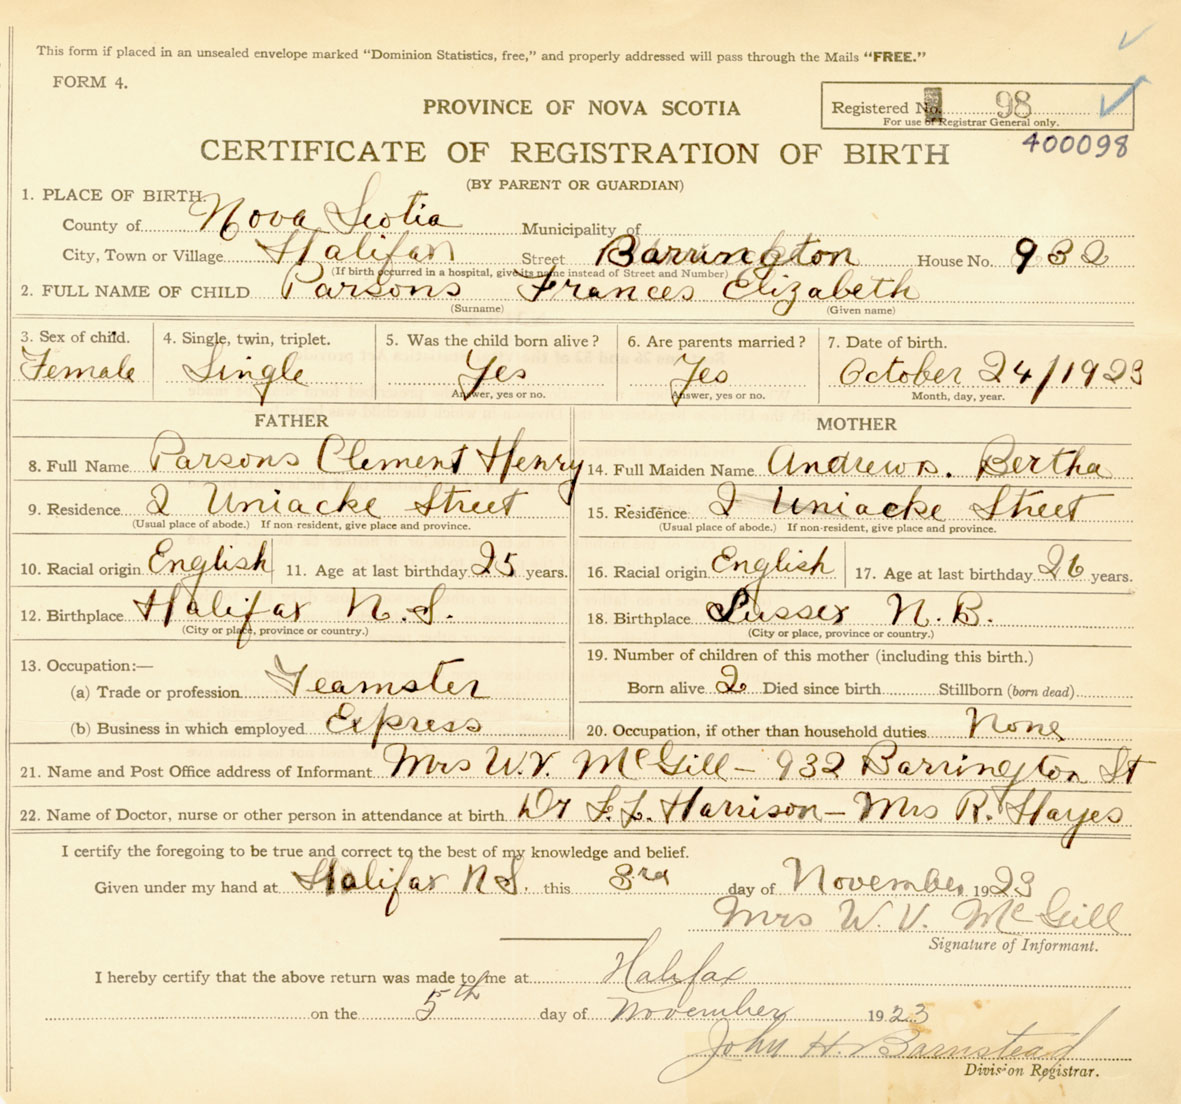 This form if placed in an unsealed envelope marked "Dominion Statistics, free," and properly addressed will pass through the Mails "FREE."
FORM 4.
PROVINCE OF NOVA SCOTIA
Registered No. 98
For use of Registrar General only.
400098
CERTIFICATE OF REGISTRATION OF BIRTH
(BY PARENT OR GUARDIAN)
1. PLACE OF BIRTH.
County of Nova Scotia Municipality of
City, Town or Village Halifax Street Barrington House No. 932
(If birth occurred in a hospital, give its name instead of Street and Number)
2. FULL NAME OF CHILD Parsons Frances Elizabeth
(Surname) (Given name)
3. Sex of child. 4. Single, twin, triplet. 5. Was the child born alive? 6. Are parents married? 7. Date of birth.
Female Single Yes Yes October 24/1923
Answer, yes or no. Answer, yes or no. Month, day, year.
FATHER MOTHER
8. Full Name Parsons Clement Henry 14. Full Maiden Name Andrews. Bertha
9. Residence 2 Uniacke Street 15. Residence 2 Uniacke Street
(Usual place of abode.) If non resident, give place and province. (Usual place of abode.) If non-resident, give place and province.
10. Racial origin English 11. Age at last birthday 25 years. 16. Racial origin English 17. Age at last birthday 26 years.
12. Birthplace Halifax N.S. 18. Birthplace Sussex N.B.
(City or place, province or country.) (City or place, province or country.)
13. Occupation:— 19. Number of children of this mother (including this birth.)
(a) Trade or profession Teamster Born alive 2 Died since birth Stillborn (born dead)
(b) Business in which employed Express 20. Occupation, if other than household duties None
21. Name and Post Office address of Informant Mrs W.V. McGill - 932 Barrington St
22. Name of Doctor, nurse or other person in attendance at birth Dr F.L. Harrison - Mrs R. Hayes
I certify the foregoing to be true and correct to the best of my knowledge and belief.
Given under my hand at Halifax N.S. this 3rd day of November 1923
Mrs W. V. McGill
Signature of Informant.
I hereby certify that the above return was made to me at Halifax
on the 5th day of November 1923
John H. Barnstead
Division Registrar.